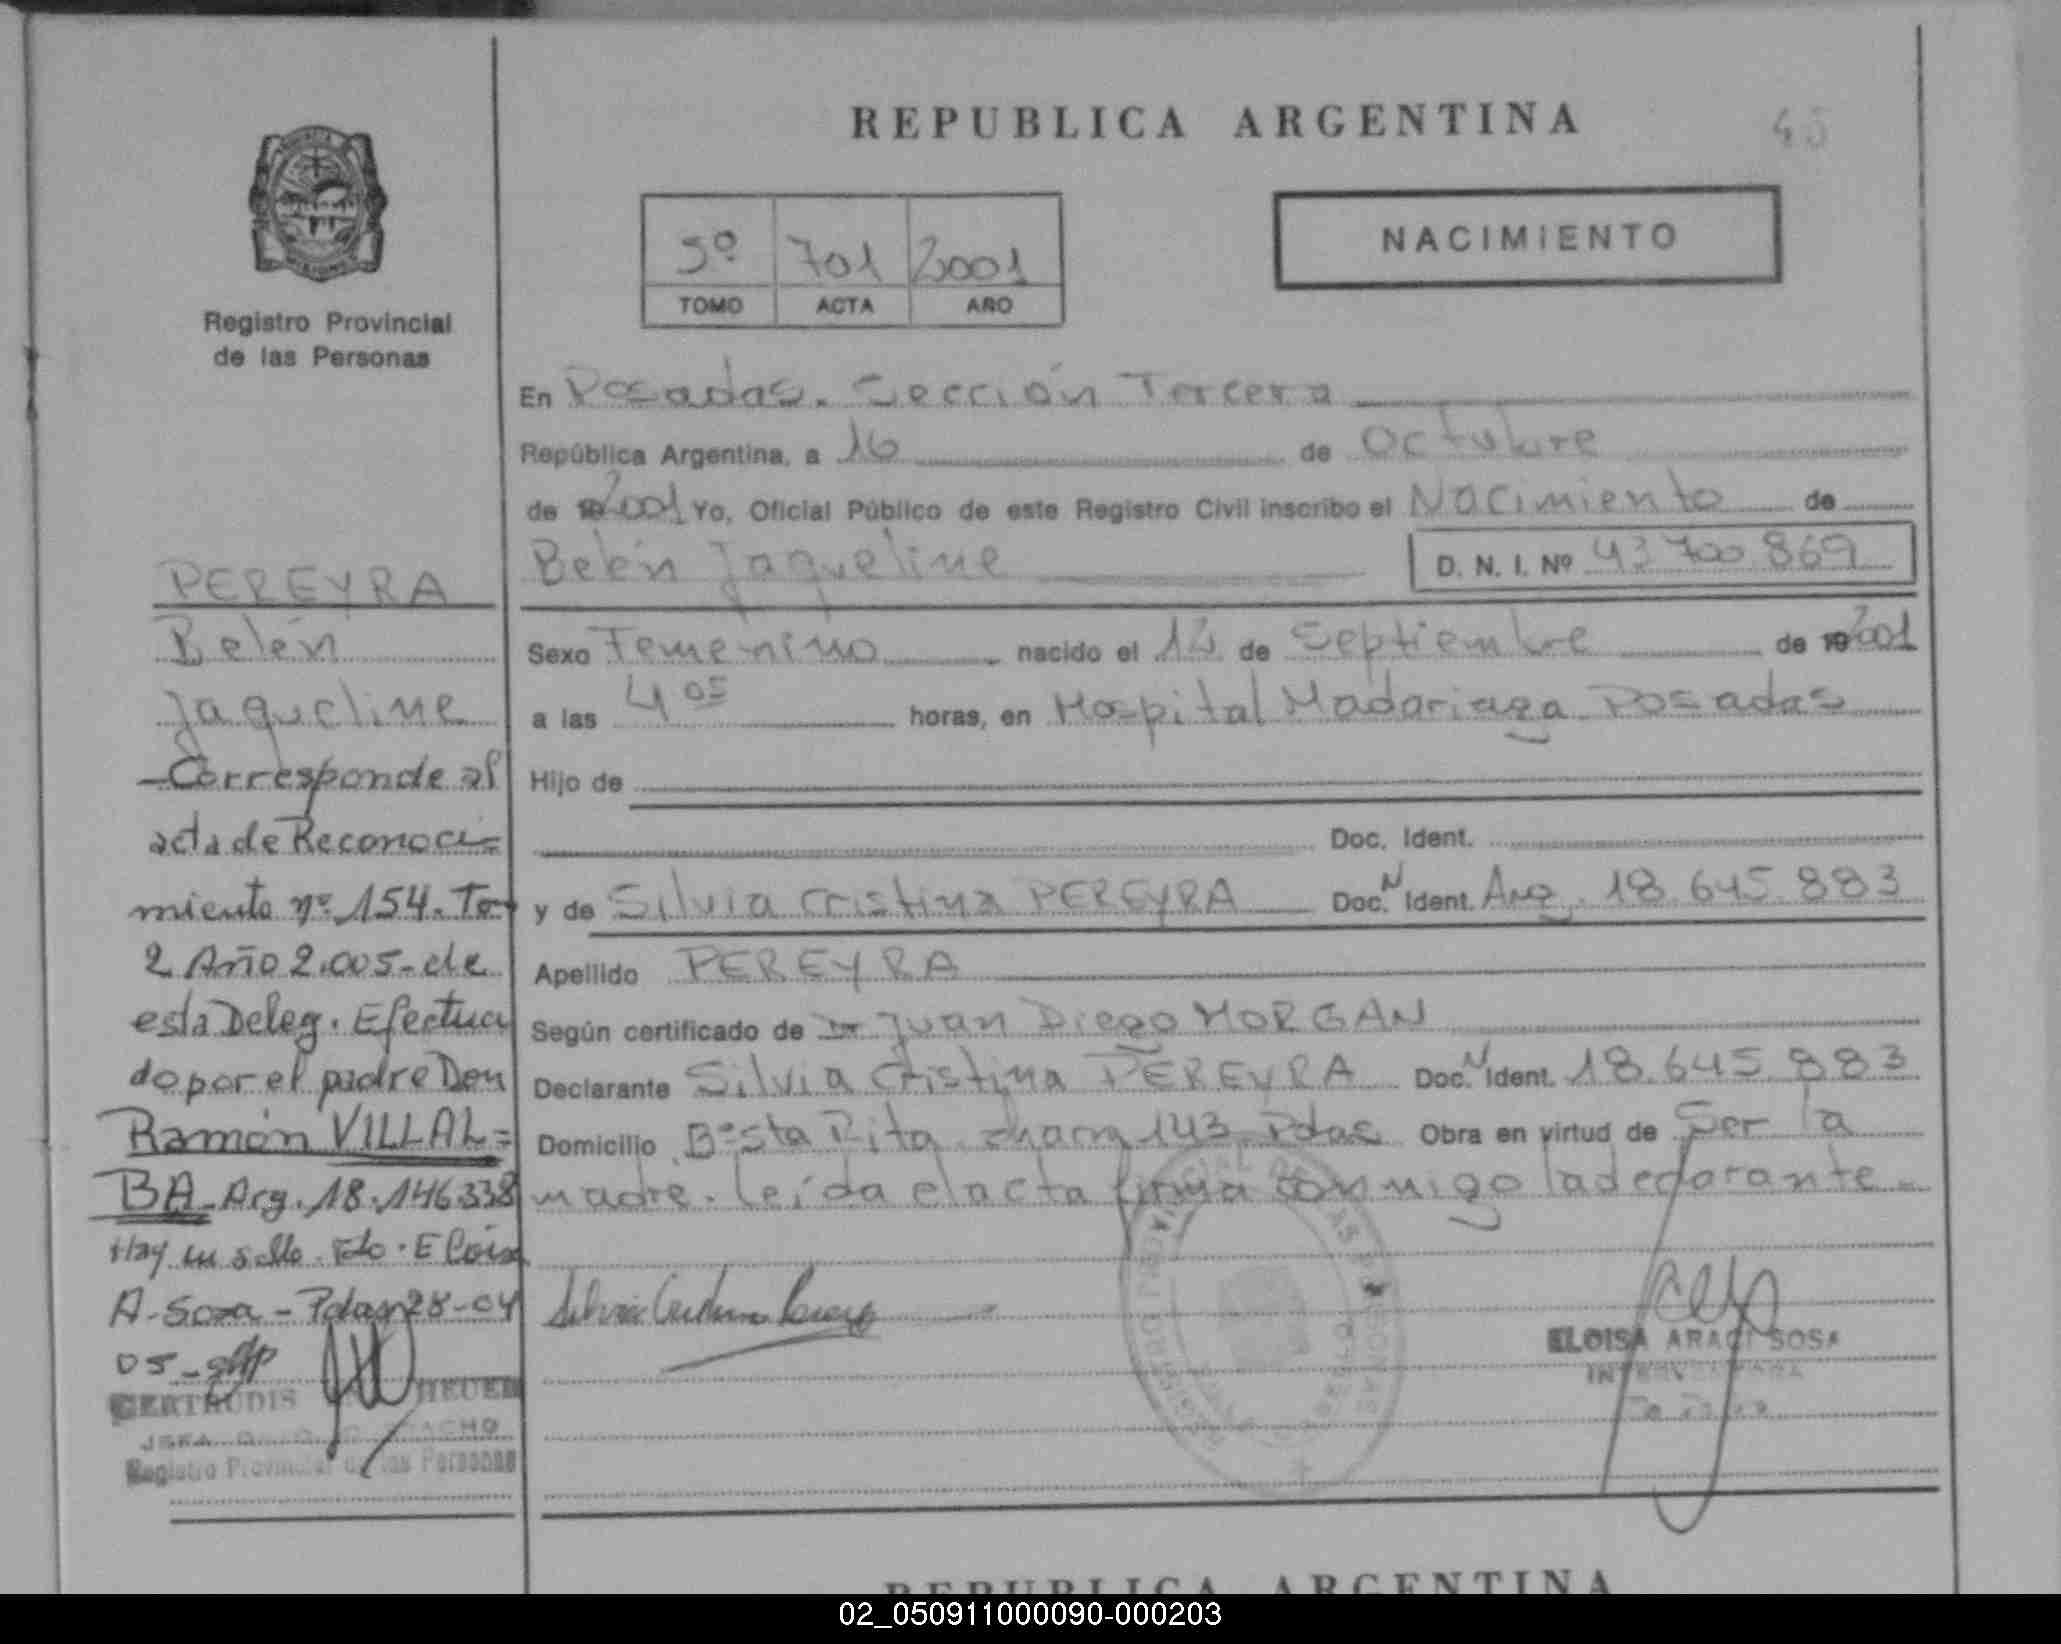 REPUBLICA ARGENTINA
45
5º 701 2001
TOMO ACTA AÑO
NACIMIENTO
Registro Provincial
de las Personas
En Posadas. Sección Tercera
República Argentina, a 16 de Octubre
de 192001 Yo, Oficial Público de este Registro Civil inscribo el Nacimiento de
Belén Jaqueline D. N. I. Nº 43 700 869
Sexo Femenino nacido el 12 de Septiembre de 192001
a las 4 05 horas, en Hospital Madariaga Posadas
Hijo de
Doc. Ident.
y de Silvia Cristina PEREYRA Doc. N Ident. Arg. 18.645.883
Apellido PEREYRA
Según certificado de Dr Juan Diego MORGAN
Declarante Silvia Cristina PEREYRA Doc. N Ident. 18.645.883
Domicilio Bº Sta Rita 143 Pdas Obra en virtud de Ser la
madre. leída el acta firma conmigo la declarante.
PEREYRA
Belén
Jaqueline
-Corresponde al
acta de Reconoci=
miento nº 154. To-
2 Año 2.005- de
esta Deleg. Efectua
do por el padre Don
Ramón VILLAL=
BA- Arg. 18.146338
Hay un sello. Fdo. Eloisa
A- Sosa - Pdas 28-04
05-
GERTRUDIS
Registro Provincial de las Personas
Silvia Cristina Pereyra
ELOISA ARACI SOSA
INTERVENTORA
REPUBLICA ARGENTINA
02_050911000090-000203